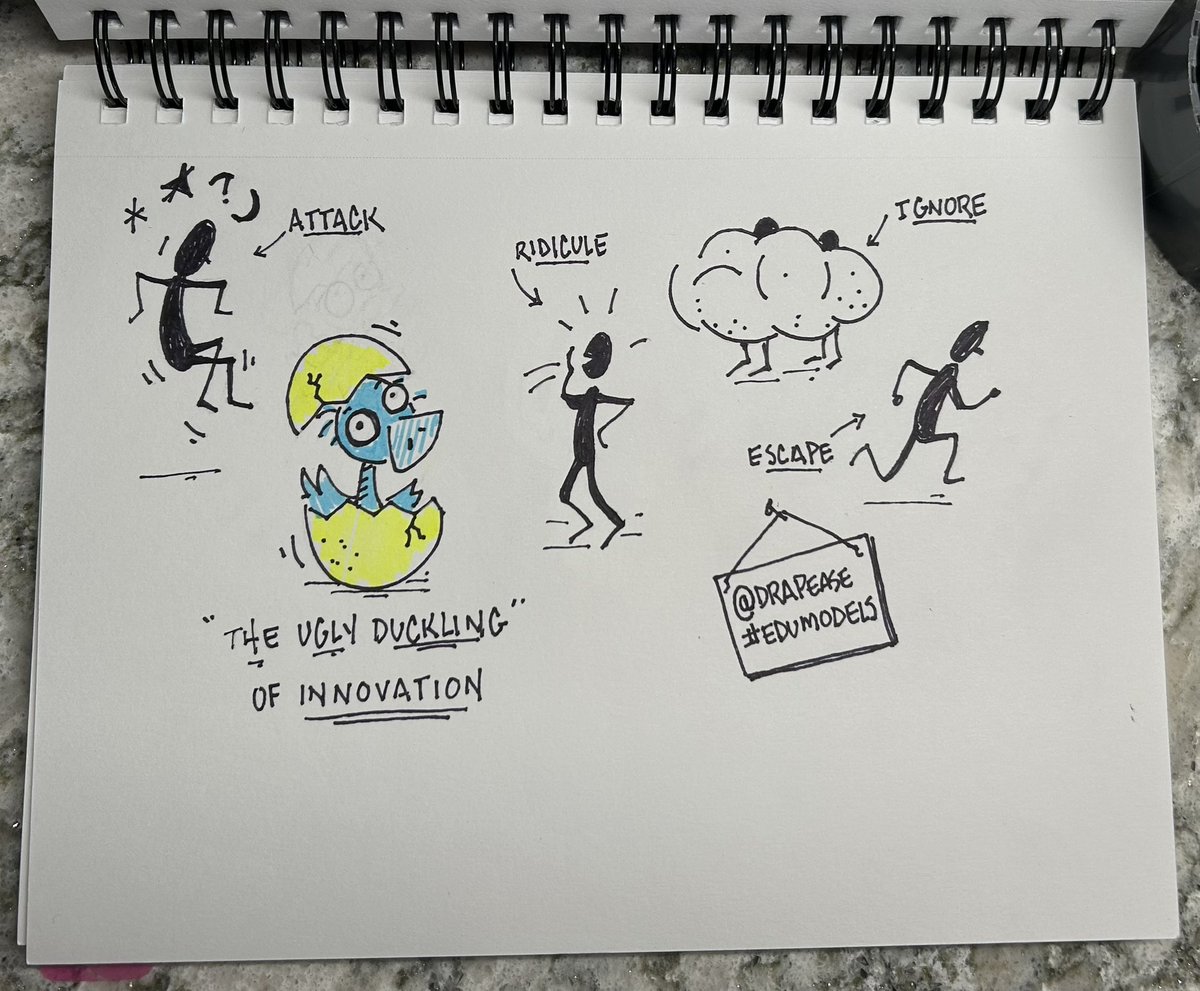 * ?
ATTACK
RIDICULE
IGNORE
ESCAPE
@DRAPEASE
#EDUMODELS
"THE UGLY DUCKLING"
OF INNOVATION